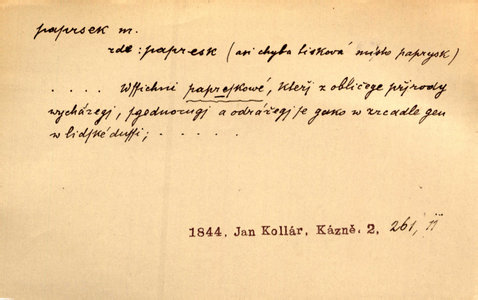 paprsek m.
zde: papresk (asi chyba tisková místo paprysk)
. . . . Wssichni papreskowé, kteřj z obličege přjrody
wycházegj, sgednocugj a odrážegj se gako w zrcadle gen
w lidské dussi; . . . . .
1844, Jan Kollár, Kázně. 2, 261, II